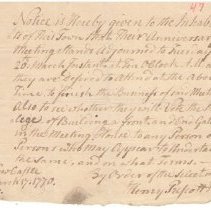 47
Notice is Hereby given to the Inhabi
of this Town that Their Anniversary
Meeting stands adjourned to Tuesday
20 March Instant at Ten o Clock A.M.
they are desired to Attend at the above
Time, to finish the Business of sd Meeting
Also to see whether they will Vote the
lege of Building a front and End Gal
in the Meeting House to any Person or
Persons who may appear to Undertake
the same, and on what Terms.
By Order of the Select
Lancaster
March 17. 1770.
Henry